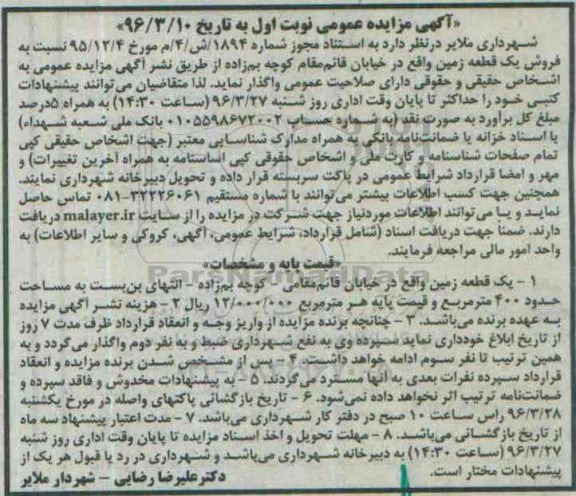 «آگهی مزایده عمومی نوبت اول به تاریخ ۹۶/۳/۱۰»
شهرداری ملایر درنظر دارد به استناد مجوز شماره ۱۸۹۴/ش/۴/م مورخ ۹۵/۱۲/۴ نسبت به
فروش یک قطعه زمین واقع در خیابان قائم‌مقام کوچه بم‌زاده از طریق نشر آگهی مزایده عمومی به
اشخاص حقیقی و حقوقی دارای صلاحیت عمومی واگذار نماید. لذا متقاضیان می‌توانند پیشنهادات
کتبی خود را حداکثر تا پایان وقت اداری روز شنبه ۹۶/۳/۲۷ (ساعت ۱۴:۳۰) به همراه ۵درصد
مبلغ کل برآورد به صورت نقد (به شماره حساب ۰۱۰۵۵۹۸۶۷۲۰۰۲ بانک ملی شعبه شهداء)
یا اسناد خزانه یا ضمانت‌نامه بانکی به همراه مدارک شناسایی معتبر (جهت اشخاص حقیقی کپی
تمام صفحات شناسنامه و کارت ملی و اشخاص حقوقی کپی اساسنامه به همراه آخرین تغییرات) و
مهر و امضا قرارداد شرایط عمومی در پاکت سربسته قرار داده و تحویل دبیرخانه شهرداری نمایند.
همچنین جهت کسب اطلاعات بیشتر می‌توانند با شماره مستقیم ۳۲۲۲۶۰۶۱-۰۸۱ تماس حاصل
نمایید و یا می‌توانند اطلاعات موردنیاز جهت شرکت در مزایده را از سایت malayer.ir دریافت
دارند. ضمناً جهت دریافت اسناد (شامل قرارداد، شرایط عمومی، آگهی، کروکی و سایر اطلاعات) به
واحد امور مالی مراجعه فرمایند.
«قیمت پایه و مشخصات»
۱ - یک قطعه زمین واقع در خیابان قائم‌مقامی - کوچه بم‌زاده - انتهای بن‌بست به مساحت
حدود ۴۰۰ مترمربع و قیمت پایه هر مترمربع ۱۲/۰۰۰/۰۰۰ ریال ۲ - هزینه نشر آگهی مزایده
به عهده برنده می‌باشد. ۳ - چنانچه برنده مزایده از واریز وجه و انعقاد قرارداد ظرف مدت ۷ روز
از تاریخ ابلاغ خودداری نماید سپرده وی به نفع شهرداری ضبط و به نفر دوم واگذار می‌گردد و به
همین ترتیب تا نفر سوم ادامه خواهد داشت. ۴ - پس از مشخص شدن برنده مزایده و انعقاد
قرارداد سپرده نفرات بعدی به آنها مسترد می‌گردند. ۵ - به پیشنهادات مخدوش و فاقد سپرده و
ضمانت‌نامه ترتیب اثر نخواهد داده نمی‌شود. ۶ - تاریخ بازگشائی پاکتهای واصله در مورخ یکشنبه
۹۶/۳/۲۸ راس ساعت ۱۰ صبح در دفتر کار شهرداری می‌باشد. ۷ - مدت اعتبار پیشنهاد سه ماه
از تاریخ بازگشائی می‌باشد. ۸ - مهلت تحویل و اخذ اسناد مزایده تا پایان وقت اداری روز شنبه
۹۶/۳/۲۷ (ساعت ۱۴:۳۰) به دبیرخانه شهرداری می‌باشد و شهرداری در رد یا قبول هر یک از
پیشنهادات مختار است.
دکتر علیرضا رضایی - شهردار ملایر